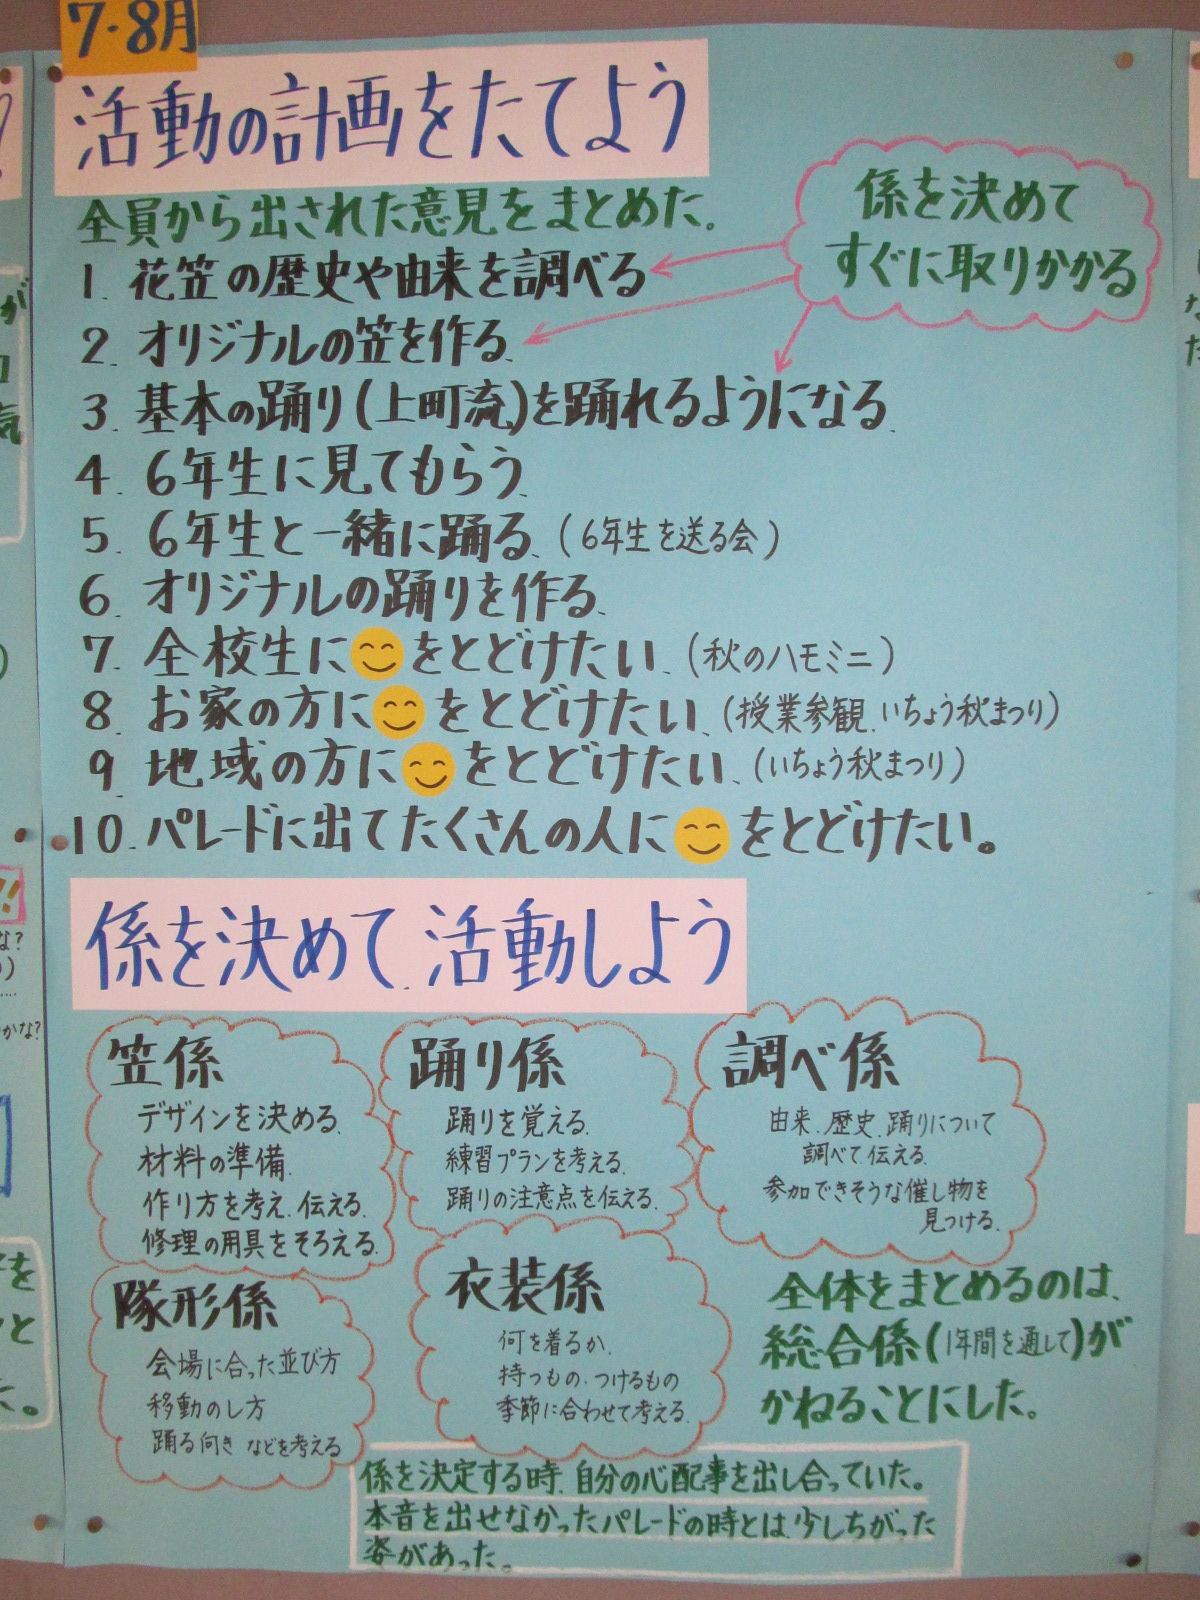 7・8月
活動の計画をたてよう
全員から出された意見をまとめた。
係を決めて
すぐに取りかかる
1. 花笠の歴史や由来を調べる
2. オリジナルの笠を作る
3. 基本の踊り(上町流)を踊れるようになる
4. 6年生に見てもらう
5. 6年生と一緒に踊る、(6年生を送る会)
6. オリジナルの踊りを作る、
7. 全校生に😊をとどけたい、(秋のハモミニ)
8. お家の方に😊をとどけたい、(授業参観、いちょう秋まつり)
9. 地域の方に😊をとどけたい、(いちょう秋まつり)
10. パレードに出てたくさんの人に😊をとどけたい。
係を決めて、活動しよう
笠係
デザインを決める、
材料の準備、
作り方を考え、伝える、
修理の用具をそろえる、
踊り係
踊りを覚える、
練習プランを考える、
踊りの注意点を伝える、
調べ係
由来、歴史、踊りについて
調べて、伝える、
参加できそうな催し物を
見つける、
隊形係
会場に合った並び方
移動のし方
踊る向き などを考える
衣装係
何を着るか、
持つもの、つけるもの
季節に合わせて考える、
全体をまとめるのは、
総合係(1年間を通して)が
かねることにした。
係を決定する時、自分の心配事を出し合っていた。
本音を出せなかったパレードの時とは、少しちがった
姿があった。